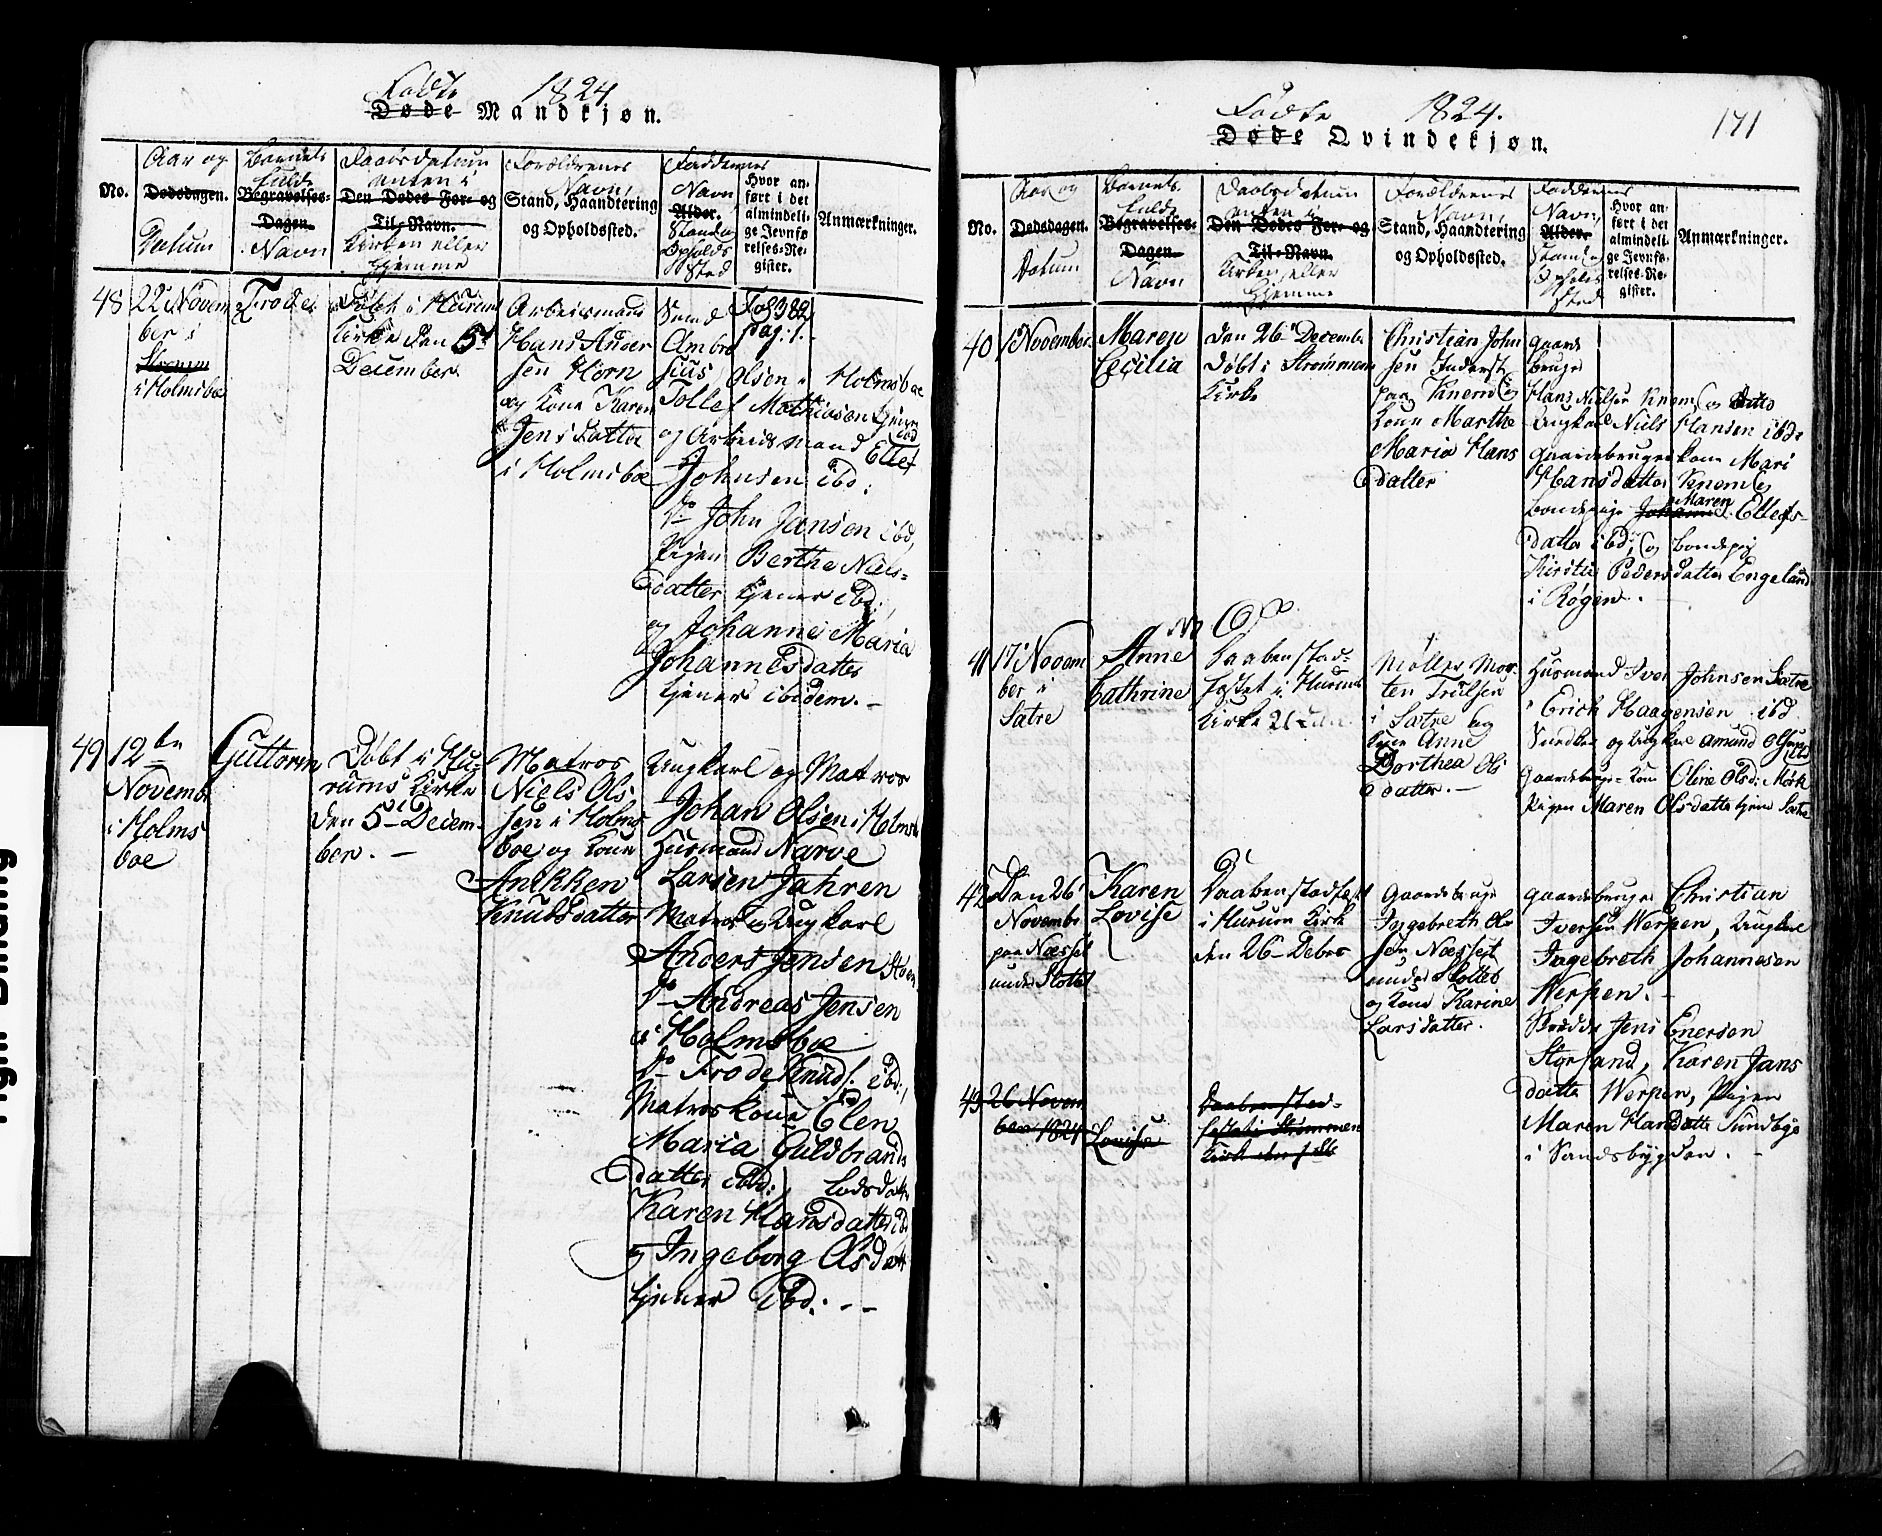 Fødte 1824
Døde Mandkjøn.
No.
Aar og
Dødsdagen.
Datum
Barnets
fulde
Begravelses-
Dagen.
Navn
Daabsdatum
enten i
Den Dødes For- og
Til-Navn.
Kirken eller
Hjemme
Forældrenes
Navn,
Stand, Haandtering
og Opholdssted.
Faddernes
Navn,
Alder.
Stand og
Opholds
Sted
Hvor an-
ført i det
almindeli-
ge Jevnfø-
relses-Re-
gister.
Anmærkninger.
48
22 Novem
ber i
i Holmsboe
Frode
Døbt i Hurums
Kirke den 5t
December.
Arbeidsmand
Hans Ander
sen Horn
og Kone Karen
Jensdatter
i Holmsboe
Fol 382
pag: 1.
Svend
Ambro
sius Olsen Holmsboe
Tollef Mathiasen tjener
ibd
og Arbeidsmand Ellef
Johnsen ibd:
do John Jansen ibd,
Pigen Berthe Niels-
datter tjener ibd:,
og Johanne Maria
Johannesdatter
tjener ibidem. -
49
12te
Novembr
i Holms
boe
Guttorm
Døbt i Hu-
rums Kirke
den 5 Decem-
ber. -
Matros
Niels Ols
sen i Holms
boe og Kone
Anikken
Knudsdatter
Ungkarl og Matros
Johan Olsen i Holmsb
Husmand Narve
Larsen Jahren
Matros Ungkarl
Anders Jensen
do Andreas Jensen
i Holmsboe
do Frode Knuds. ibd:,
Matroskone Elen
Maria Guldbrands
datter ibd:,
Karen Hansdatter ibd
og Ingeborg Olsdatt
tjener ibd: --
Fødte 1824.
171
Døde Qvindekjøn.
No.
Aar og
Dødsdagen
Datum
Barnets
fulde
Begravelses-
Dagen.
Navn
Daabsdatum
enten i
Den Dødes For- og
Til-Navn.
Kirken, eller
Hjemme
Forældrenes
Navn,
Stand, Haandtering
og Opholdssted.
Faddernes
Navn,
Alder.
Stand og
Opholds
Sted
Hvor an-
ført i det
almindeli-
ge Jevnfø-
relses-Re-
gister.
Anmærkninger.
40
1 November
Maren
Cecilia
den 26 December
døbt i Strømmens
Kirke
Christian John
sen Inderst
paa Knem og
Kone Marthe
Maria Hans
datter
Gaard
bruger
Hans Nielsen Knem, og ditto
Ungkarl Niels Hansen ibd:
Gaardbruger kone Mari
Hansdatter Knem og
Maren
Bondepige Johanne Ellefs-
datter ibd:, og bondepig
Kirstie Pedersdatter Engelund
i Røgen. -
41
17 Novem
ber i
Sætre
Anne
Cathrine
Daaben stad-
fæstet i Hurums
Kirke
Møller Mor
ten Trulsen
i Sætre og
Kone Anne
Dorthea Ols
datter. -
Husmand Iver Johnsen Sætre
Erich Haagensen ibd.
og Ungkarl Amund Olsen
Gaardbruger-Kone Oline Olsd: Mørk
Pigen Maren Olsdatter tjener Sætre
42
Den 26
Novembr
paa Næsset
under Slottet
Karen
Lovise
Daaben stadfæst
i Hurum Kirk
den 26 Debr
Gaardbruger
Ingebreth Ol
sen Næsset
under Slottet
og Kone Karine
Larsdatter.
Gaardbruger Christian
Iversen Werpen, Ungkarl
Ingebreth Johannesen
Werpen. -
Jens Enersen
Storsand, Karen Jans
datter Werpen, Pigen
Maren Hansdatter Sundbye
i Sandsbygden. -
43
26 Novem
ber 1824
Lovise
Daaben stad-
fæstet i Strømmen
Kirk